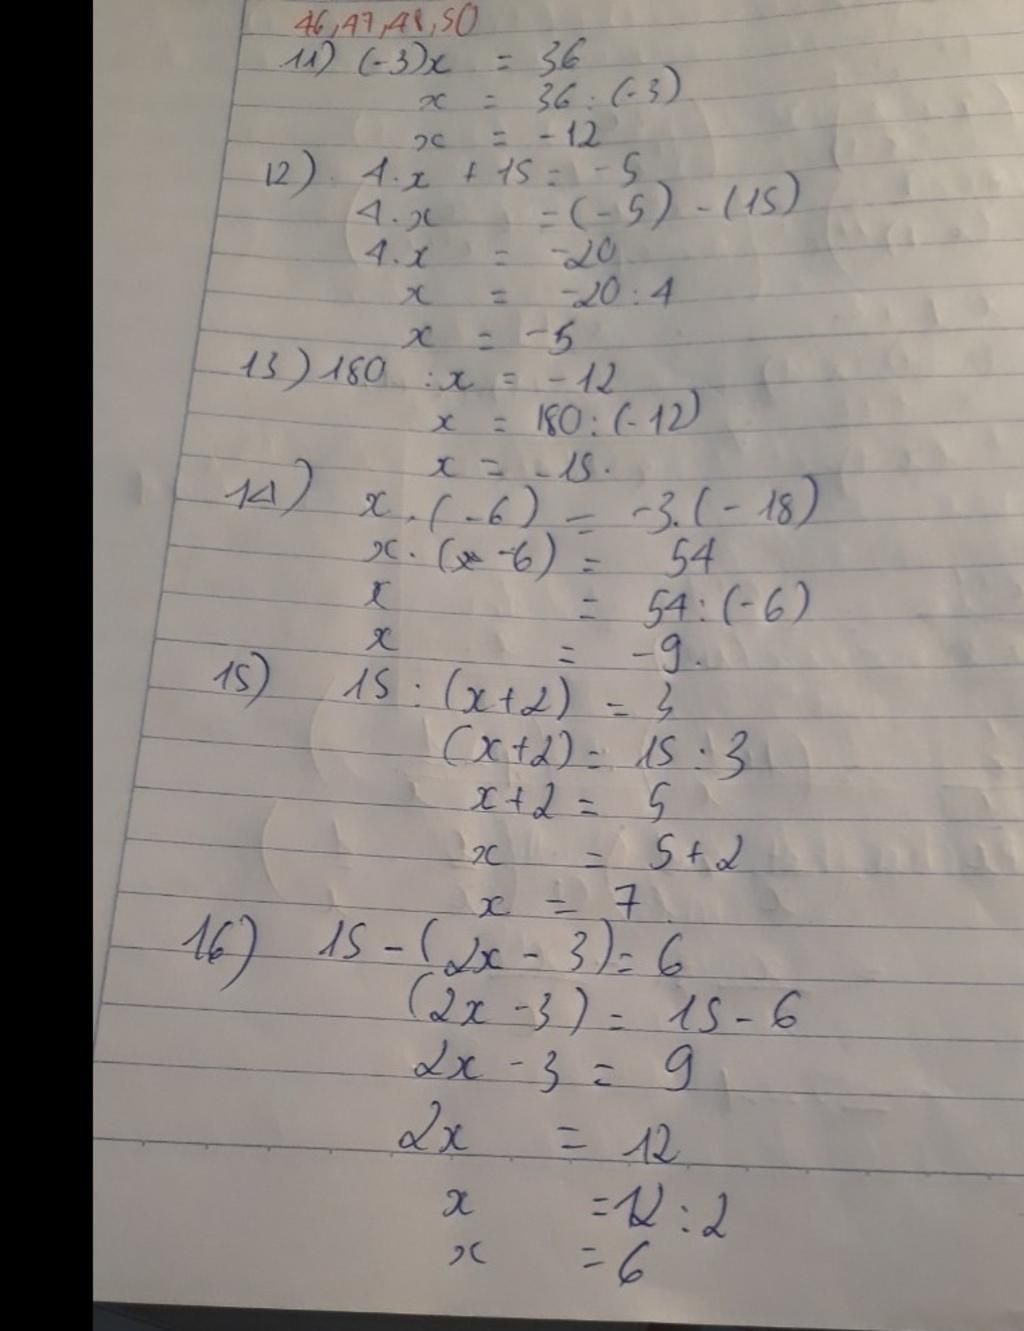 46,47,48,50
11) (-3)x = 36
x = 36 : (-3)
x = -12
12) 4.x + 15 = -5
4.x = (-5) - (15)
4.x = -20
x = -20 : 4
x = -5
13) 180 : x = -12
x = 180 : (-12)
x = -15.
14) x . (-6) = -3.(-18)
x . (-6) = 54
x = 54 : (-6)
x = -9.
15) 15 : (x+2) = 3
(x+2) = 15 : 3
x+2 = 5
x = 5+2
x = 7
16) 15 - (2x - 3) = 6
(2x - 3) = 15 - 6
2x - 3 = 9
2x = 12
x = 12 : 2
x = 6